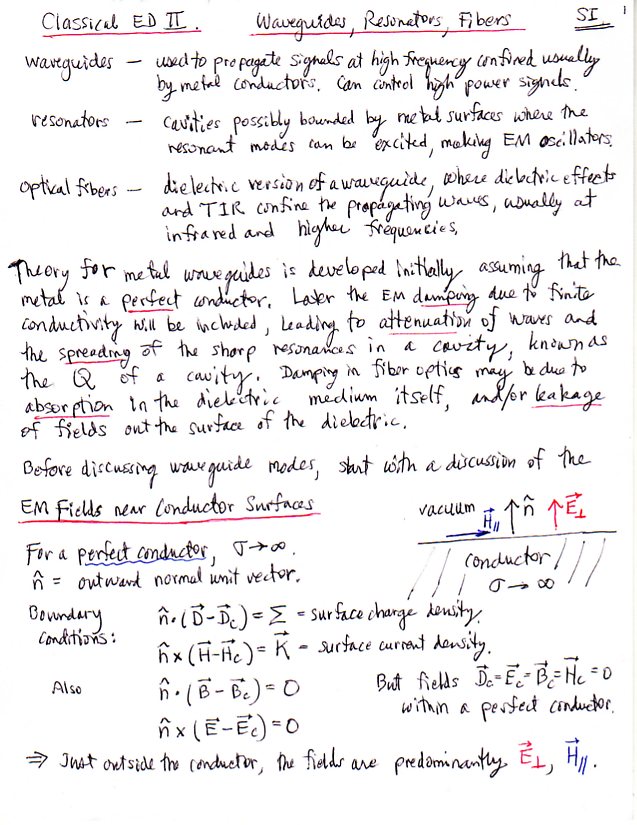 Classical ED II. Waveguides, Resonators, Fibers SI. 1
waveguides — used to propagate signals at high frequency confined usually
by metal conductors. Can control high power signals.
resonators — cavities possibly bounded by metal surfaces where the
resonant modes can be excited, making EM oscillators.
optical fibers — dielectric version of a waveguide, where dielectric effects
and TIR confine the propagating waves, usually at
infrared and higher frequencies.
Theory for metal waveguides is developed initially assuming that the
metal is a perfect conductor. Later the EM damping due to finite
conductivity will be included, leading to attenuation of waves and
the spreading of the sharp resonances in a cavity, known as
the Q of a cavity. Damping in fiber optics may be due to
absorption in the dielectric medium itself, and/or leakage
of fields out the surface of the dielectric.
Before discussing waveguide modes, start with a discussion of the
EM Fields near Conductor Surfaces
vacuum H⃗∥ n̂ E⃗⊥
conductor
σ→∞
For a perfect conductor, σ→∞.
n̂ = outward normal unit vector.
Boundary conditions:
n̂·(D⃗-D⃗c) = Σ = surface charge density.
n̂×(H⃗-H⃗c) = K⃗ - surface current density.
Also n̂·(B⃗-B⃗c) = 0
n̂×(E⃗-E⃗c) = 0
But fields D⃗c=E⃗c=B⃗c=H⃗c=0
within a perfect conductor.
⇒ Just outside the conductor, the fields are predominantly E⃗⊥, H⃗∥.